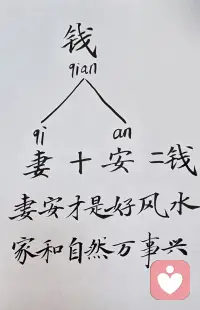 钱
qian
qi an
妻十安二钱
妻安才是好风水
家和自然万事兴